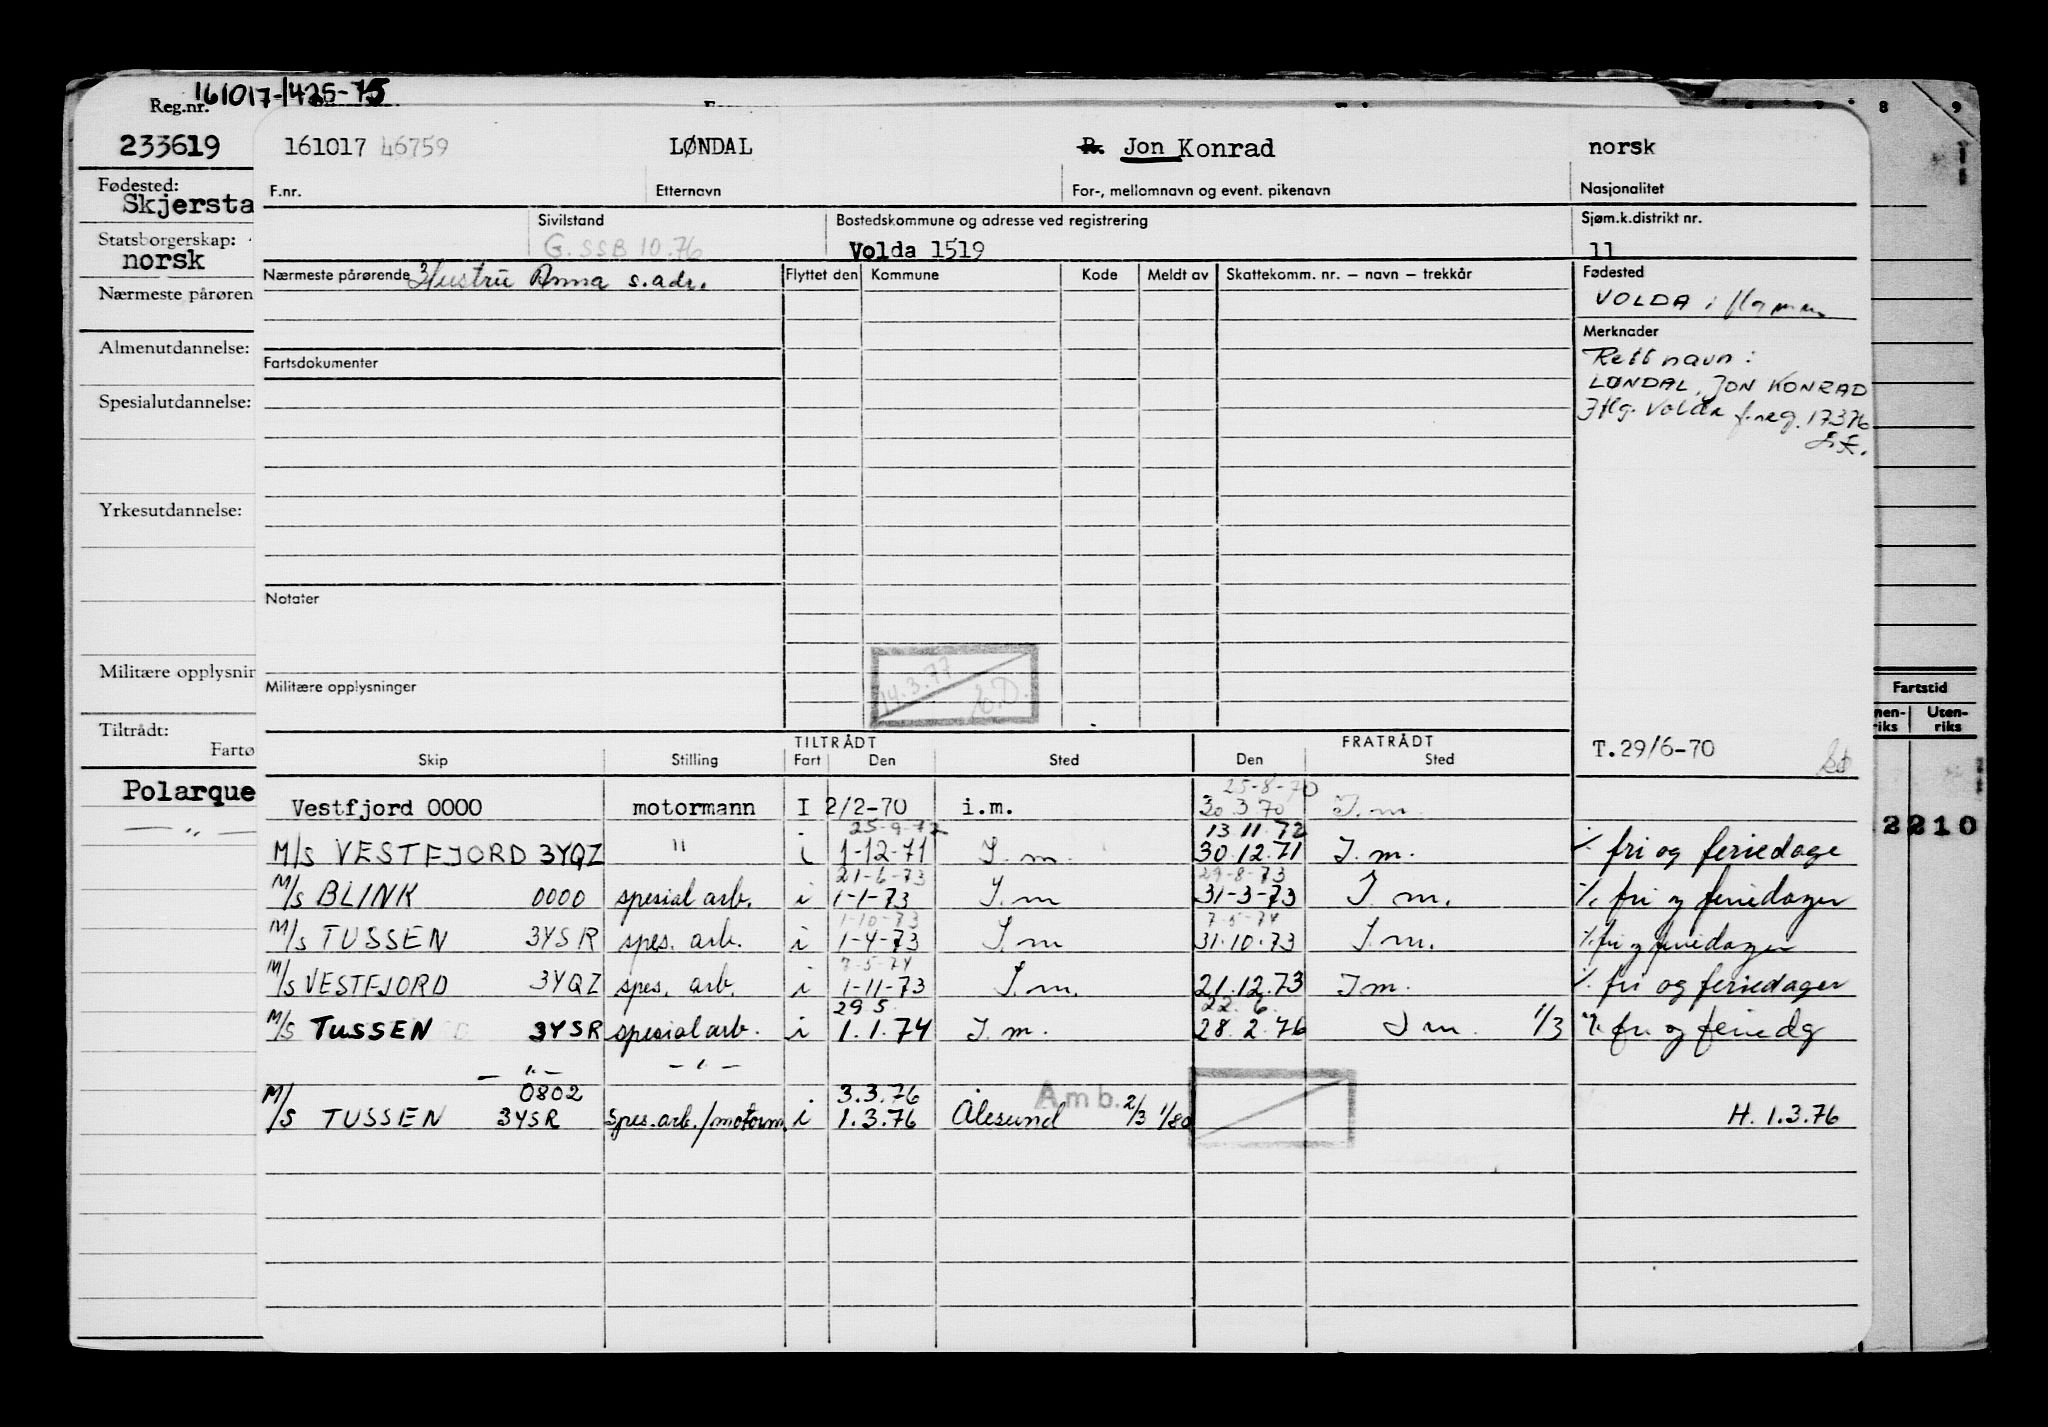 161017-1425-75
Reg.nr.
233619
Fødested:
Skjersta
Statsborgerskap:
norsk
Nærmeste pårøren
Almenutdannelse:
Spesialutdannelse:
Yrkesutdannelse:
Militære opplysnin
Tiltrådt:
Farto
Polarque
— " —
8 9
161017 46759 LØNDAL R. Jon Konrad norsk
F.nr. Etternavn For-, mellomnavn og event. pikenavn Nasjonalitet
Sivilstand Bostedskommune og adresse ved registrering Sjøm.k.distrikt nr.
G. SSB 10.76 Volda 1519 11
Nærmeste pårørende Hustru Anna s.adr. Flyttet den Kommune Kode Meldt av Skattekomm. nr. – navn – trekkår Fødested
VOLDA i
Merknader
Fartsdokumenter
Rett navn:
LØNDAL, JON KONRAD
Iflg. Volda f.reg. 17376
Notater
14.3.77
Militære opplysninger
Fartstid
nen-riks Uten-riks
TILTRÅDT FRATRÅDT T.29/6-70
Skip Stilling Fart Den Sted Den Sted
25-8-70
Vestfjord 0000 motormann I 2/2-70 i.m. 30.3.70 I.m.
25-9-72 13.11.72
M/S VESTFJORD 3YQZ " i 1-12-71 I.m. 30.12.71 I.m. % fri og feriedage
21-6-73 29-8-73
M/S BLINK 0000 spesial arb. i 1-1-73 I.m 31-3-73 I.m. % fri og feriedager
1-10-73 7-5-74
M/S TUSSEN 3YSR spes. arb. i 1-4-73 I.m 31.10.73 I.m. % fri og feriedager
7-5-74
M/S VESTFJORD 3YQZ spes. arb. i 1-11-73 I.m. 21.12.73 I m. % fri og feriedager
29 5 22. 6.
M/S TUSSEN 3YSR spesial arb. i 1.1.74 I.m. 28.2.76 I m. 1/3 % fri og feriedg
— " — — " —
0802 3.3.76 Amb.
M/S TUSSEN 3YSR Spes.arb./motorm. i 1.3.76 Ålesund 2/3 1/80 H. 1.3.76
2210